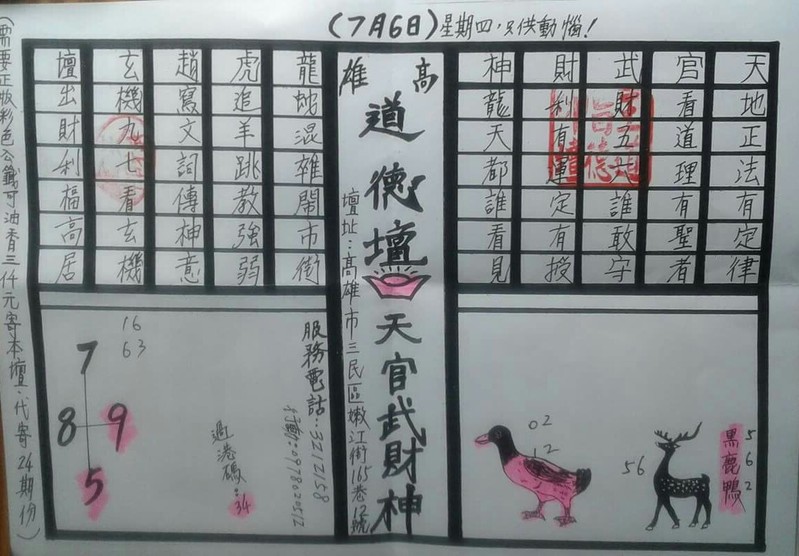 (7月6日)星期四,只供動惱!
天地正法有定律
官看道理有聖者
武財五六誰敢守
財利有運定有授
神龍天都誰看見
高雄
道德壇
天官武財神
壇址:高雄市三民區嫩江街165巷12號
龍蛇混雜鬧市街
虎追羊跳教強弱
趙寫文詞傳神意
玄機九七看玄機
壇出財利福高居
黑鹿鴨
562
56
02
12
服務電話:3212158
行動:0978020512
過港碼:34
16
63
7
8 9
5
(需要正版彩色公籤可油香三仟元寄本壇.代寄24期份)